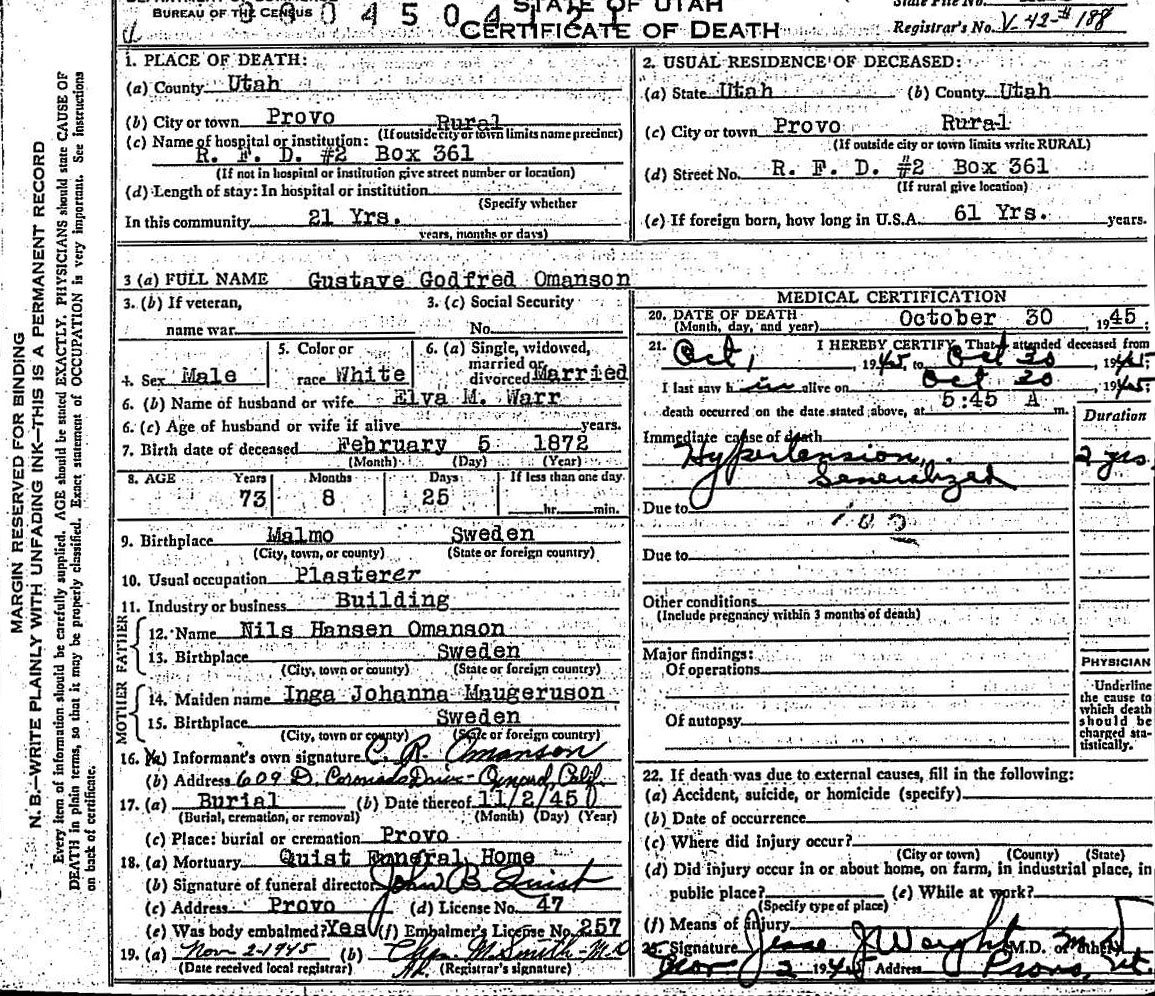 BUREAU OF THE CENSUS
STATE OF UTAH
CERTIFICATE OF DEATH
State File No.
Registrar's No. V-42-#188
MARGIN RESERVED FOR BINDING
N. B.—WRITE PLAINLY WITH UNFADING INK—THIS IS A PERMANENT RECORD
Every item of information should be carefully supplied. AGE should be stated EXACTLY. PHYSICIANS should state CAUSE OF
DEATH in plain terms, so that it may be properly classified. Exact statement of OCCUPATION is very important. See instructions
on back of certificate.
1. PLACE OF DEATH:
(a) County Utah
(b) City or town Provo Rural
(If outside city or town limits name precinct)
(c) Name of hospital or institution:
R. F. D. #2 Box 361
(If not in hospital or institution give street number or location)
(d) Length of stay: In hospital or institution
(Specify whether
In this community 21 Yrs.
years, months or days)
2. USUAL RESIDENCE OF DECEASED:
(a) State Utah (b) County Utah
(c) City or town Provo Rural
(If outside city or town limits write RURAL)
(d) Street No. R. F. D. #2 Box 361
(If rural give location)
(e) If foreign born, how long in U.S.A. 61 Yrs. years.
3 (a) FULL NAME Gustave Godfred Omanson
3. (b) If veteran,
name war
3. (c) Social Security
No.
4. Sex Male
5. Color or
race White
6. (a) Single, widowed,
married or
divorced Married
6. (b) Name of husband or wife Elva M. Warr
6. (c) Age of husband or wife if alive years.
7. Birth date of deceased February 5 1872
(Month) (Day) (Year)
8. AGE Years Months Days If less than one day
73 8 25 hr. min.
9. Birthplace Malmo Sweden
(City, town, or county) (State or foreign country)
10. Usual occupation Plasterer
11. Industry or business Building
FATHER
12. Name Nils Hansen Omanson
13. Birthplace Sweden
(City, town or county) (State or foreign country)
MOTHER
14. Maiden name Inga Johanna Maugeruson
15. Birthplace Sweden
(City, town or county) (State or foreign country)
16. (a) Informant's own signature C. R. Omanson
(b) Address 609 D. Coronado Drive - Oxnard, Calif.
17. (a) Burial (b) Date thereof 11/2/45
(Burial, cremation, or removal) (Month) (Day) (Year)
(c) Place: burial or cremation Provo
18. (a) Mortuary Quist Funeral Home
(b) Signature of funeral director John B Quist
(c) Address Provo (d) License No. 47
(e) Was body embalmed? Yes (f) Embalmer's License No. 257
19. (a) Nov 2-1945 (b) M. Smith - M.D
(Date received local registrar) (Registrar's signature)
MEDICAL CERTIFICATION
20. DATE OF DEATH October 30, 1945;
(Month, day, and year)
21. I HEREBY CERTIFY, That I attended deceased from
Oct, 1945, to Oct 30, 1945.
I last saw him alive on Oct 30, 1945.
death occurred on the date stated above, at 5:45 A m.
Duration
Immediate cause of death
Hypertension, 2 yrs.
Generalized
Due to
102
Due to
Other conditions
(Include pregnancy within 3 months of death)
Major findings:
Of operations
Of autopsy
PHYSICIAN
Underline
the cause to
which death
should be
charged sta-
tistically.
22. If death was due to external causes, fill in the following:
(a) Accident, suicide, or homicide (specify)
(b) Date of occurrence
(c) Where did injury occur?
(City or town) (County) (State)
(d) Did injury occur in or about home, on farm, in industrial place, in
public place? (e) While at work?
(Specify type of place)
(f) Means of injury
Signature Jesse J Weight M.D. or other M D
Nov 2 1945 Address Provo, Ut.